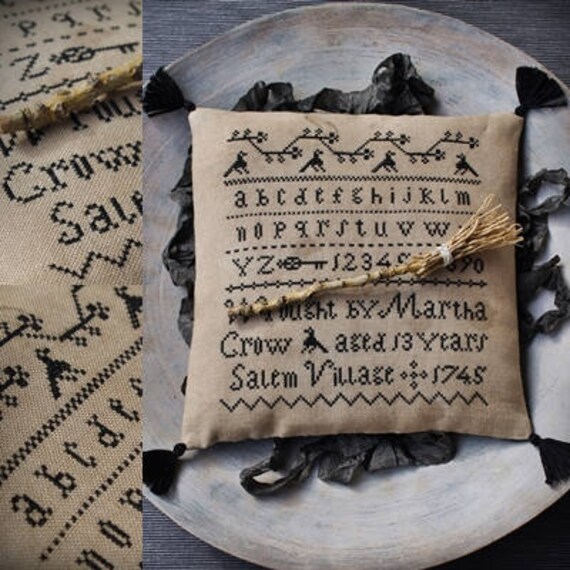 p q r s
Z
Crow
Sale
a b c d e
n o p
a b c d e f g h i j k l m
n o p q r s t u v w
Y Z 1 2 3 4 5 9 0
by Martha
Crow aged 13 years
Salem Village 1745